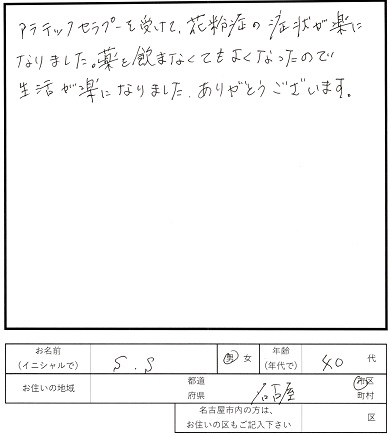 アラテックセラピーを受けて、花粉症の症状が楽に
なりました。薬を飲まなくてもよくなったので
生活が楽になりました。ありがとうございます。
お名前
(イニシャルで)
S.S
男 女
年齢
(年代で)
40 代
お住いの地域
都道
府県
名古屋
市区
町村
名古屋市内の方は、
お住いの区もご記入下さい
区